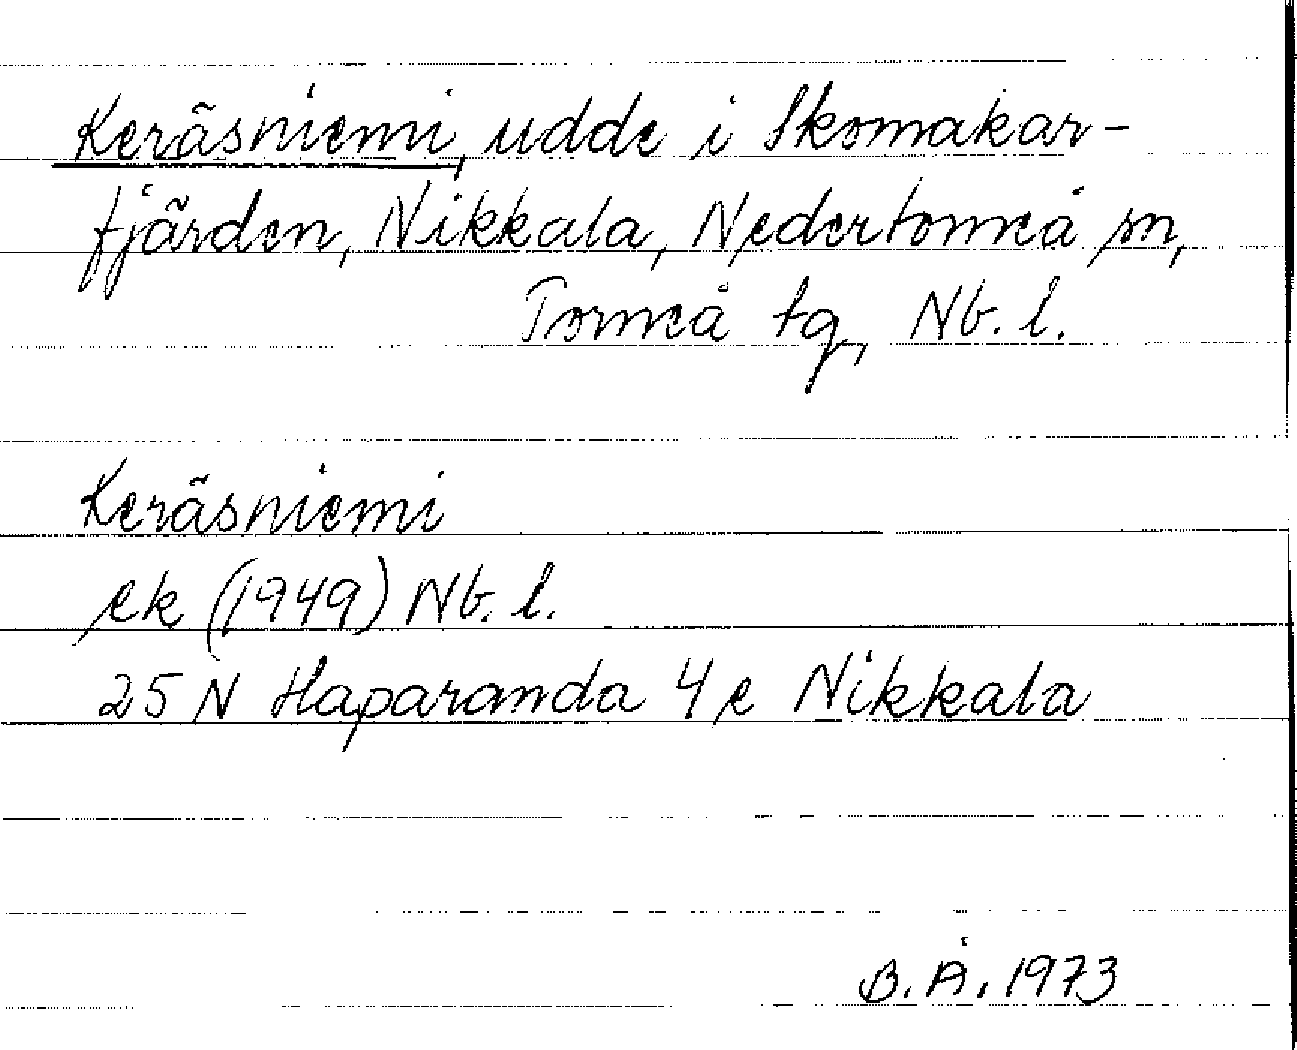 Keräsniemi, udde i Skomakar-
fjärden, Nikkala, Nedertorneå sn,
Torneå tg, Nb. l.
Keräsniemi
ek (1949) Nb. l.
25 N Haparanda 4 e Nikkala
B. Å. 1973